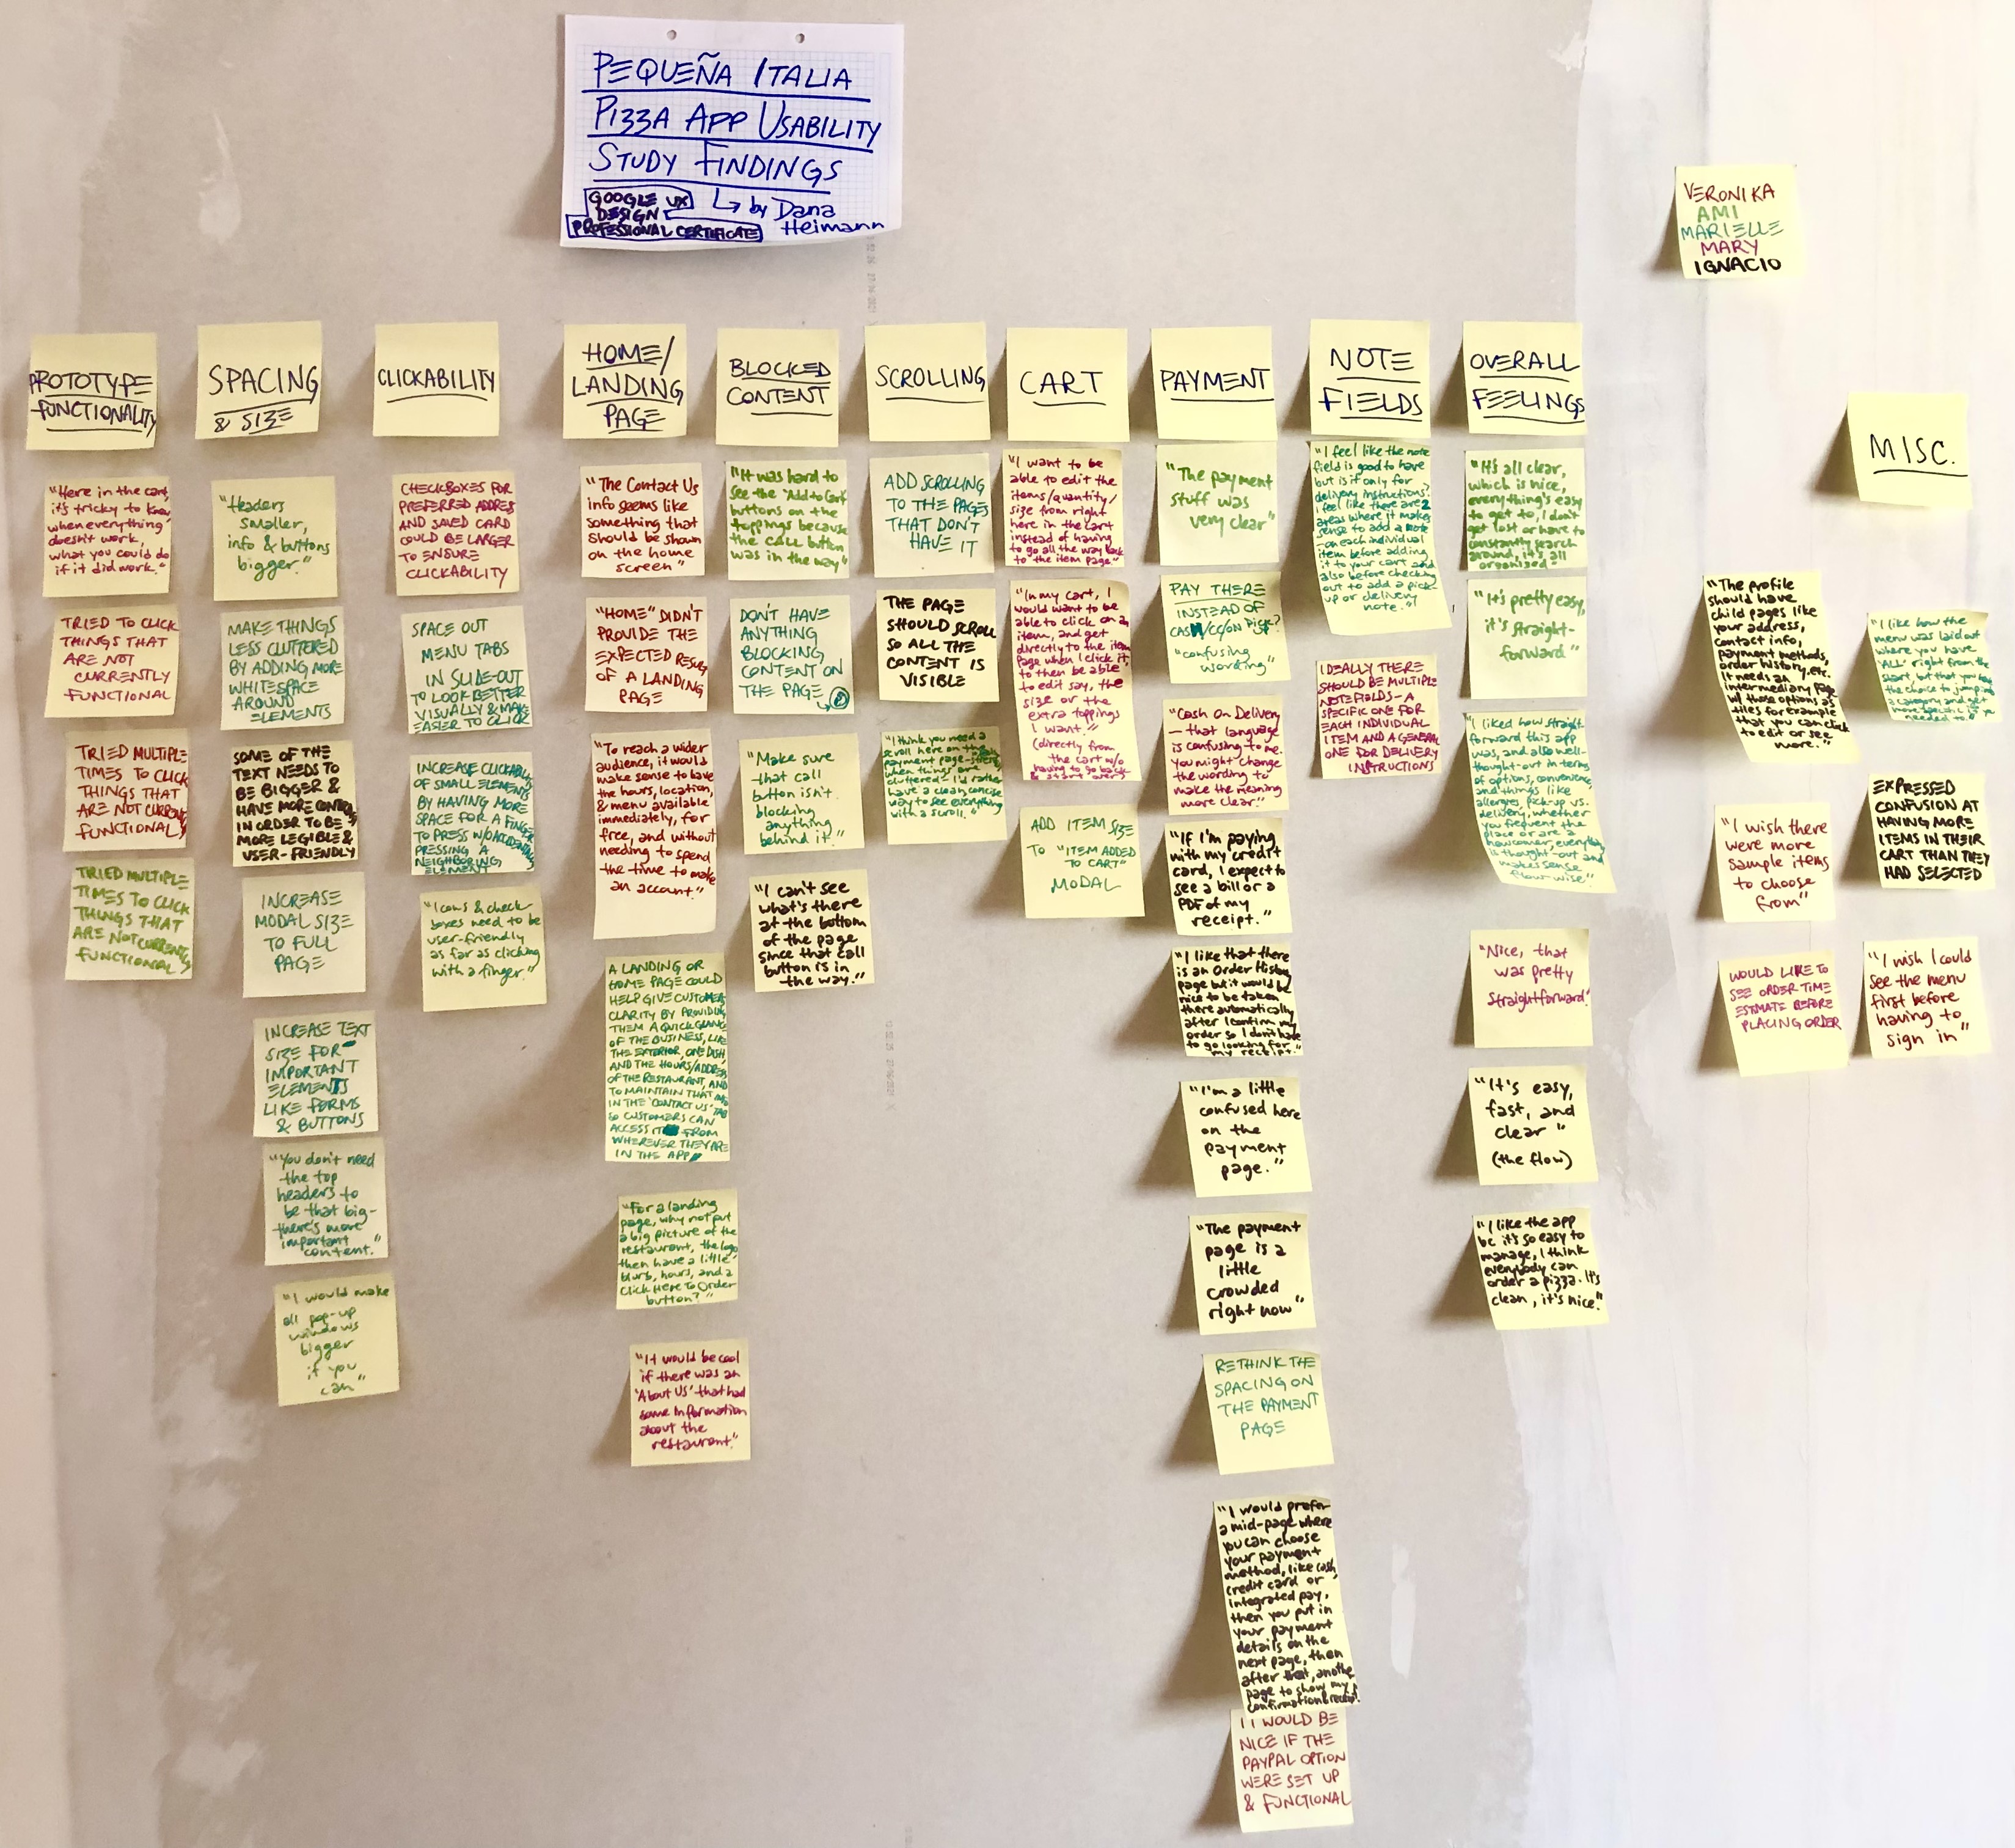 PEQUEÑA ITALIA
PIZZA APP USABILITY
STUDY FINDINGS
GOOGLE UX
DESIGN
PROFESSIONAL CERTIFICATE
↳ by Dana
Heimann
VERONIKA
AMI
MARIELLE
MARY
IGNACIO
PROTOTYPE
FUNCTIONALITY
"Here in the cart,
it's tricky to know
when everything
doesn't work,
what you could do
if it did work."
TRIED TO CLICK
THINGS THAT
ARE NOT
CURRENTLY
FUNCTIONAL
TRIED MULTIPLE
TIMES TO CLICK
THINGS THAT
ARE NOT CURRENTLY
FUNCTIONAL
TRIED MULTIPLE
TIMES TO CLICK
THINGS THAT
ARE NOT CURRENTLY
FUNCTIONAL
SPACING
& SIZE
"Headers
smaller,
info & buttons
bigger."
MAKE THINGS
LESS CLUTTERED
BY ADDING MORE
WHITESPACE
AROUND
ELEMENTS
SOME OF THE
TEXT NEEDS TO
BE BIGGER &
HAVE MORE CONTRAST
IN ORDER TO BE
MORE LEGIBLE &
USER-FRIENDLY
INCREASE
MODAL SIZE
TO FULL
PAGE
INCREASE TEXT
SIZE FOR
IMPORTANT
ELEMENTS
LIKE FORMS
& BUTTONS
"You don't need
the top
headers to
be that big-
there's more
important
content."
"I would make
all pop-up
windows
bigger
if you
can"
CLICKABILITY
CHECKBOXES FOR
PREFERRED ADDRESS
AND SAVED CARD
COULD BE LARGER
TO ENSURE
CLICKABILITY
SPACE OUT
MENU TABS
IN SLIDE-OUT
TO LOOK BETTER
VISUALLY & MAKE
EASIER TO CLICK
INCREASE CLICKABILITY
OF SMALL ELEMENTS
BY HAVING MORE
SPACE FOR A FINGER
TO PRESS W/O ACCIDENTALLY
PRESSING A
NEIGHBORING
ELEMENT
"Icons & check
boxes need to be
user-friendly
as far as clicking
with a finger."
HOME/
LANDING
PAGE
"The Contact Us
info seems like
something that
should be shown
on the home
screen"
"HOME" DIDN'T
PROVIDE THE
EXPECTED RESULT
OF A LANDING
PAGE
"To reach a wider
audience, it would
make sense to have
the hours, location,
& menu available
immediately, for
free, and without
needing to spend
the time to make
an account."
A LANDING OR
HOME PAGE COULD
HELP GIVE CUSTOMERS
CLARITY BY PROVIDING
THEM A QUICK GLANCE
OF THE BUSINESS, LIKE
THE EXTERIOR, ONE DISH,
AND THE HOURS/ADDRESS
OF THE RESTAURANT, AND
TO MAINTAIN THAT INFO
IN THE 'CONTACT US' TAB
SO CUSTOMERS CAN
ACCESS IT FROM
WHEREVER THEY ARE
IN THE APP
"For a landing
page, why not put
a big picture of the
restaurant, the logo
then have a little
blurb, hours, and a
Click Here To Order
button?"
"It would be cool
if there was an
'About Us' that had
some information
about the
restaurant."
BLOCKED
CONTENT
"It was hard to
see the 'Add to Cart'
buttons on the
toppings because
the call button
was in the way"
DON'T HAVE
ANYTHING
BLOCKING
CONTENT ON
THE PAGE
"Make sure
that call
button isn't
blocking
anything
behind it."
"I can't see
what's there
at the bottom
of the page
since that call
button is in
the way."
SCROLLING
ADD SCROLLING
TO THE PAGES
THAT DON'T
HAVE IT
THE PAGE
SHOULD SCROLL
SO ALL THE
CONTENT IS
VISIBLE
"I think you need a
scroll here on the
payment page-
when things are
cluttered- I'd rather
have a clean, concise
way to see everything
with a scroll."
CART
"I want to be
able to edit the
items/quantity/
size from right
here in the cart
instead of having
to go all the way back
to the item page"
"In my cart, I
would want to be
able to click on an
item, and get
directly to the item
page when I click it,
to then be able
to edit say, the
size or the
extra toppings
I want."
(directly from
the cart w/o
having to go back
& start over)
ADD ITEM SIZE
TO "ITEM ADDED
TO CART"
MODAL
PAYMENT
"The payment
stuff was
very clear"
PAY THERE
INSTEAD OF
CASH/CC/ON PICK?
"confusing
wording"
"Cash On Delivery
- that language
is confusing to me.
You might change
the wording to
make the meaning
more clear."
"If I'm paying
with my credit
card, I expect to
see a bill or a
PDF of my
receipt."
"I like that there
is an Order History
page but it would be
nice to be taken
there automatically
after I confirm my
order so I don't have
to go looking for
my receipt."
"I'm a little
confused here
on the
payment
page."
"The payment
page is a
little
crowded
right now"
RETHINK THE
SPACING ON
THE PAYMENT
PAGE
"I would prefer
a mid-page where
you can choose
your payment
method, like cash,
credit card or
integrated pay,
then you put in
your payment
details on the
next page, then
after that, another
page to show my
confirmation & receipt."
IT WOULD BE
NICE IF THE
PAYPAL OPTION
WERE SET UP
& FUNCTIONAL
NOTE
FIELDS
"I feel like the note
field is good to have
but is it only for
delivery instructions?
I feel like there are 2
areas where it makes
sense to add a note
-on each individual
item before adding
it to your cart and
also before checking
out to add a pick-
up or delivery
note."
IDEALLY THERE
SHOULD BE MULTIPLE
NOTE FIELDS - A
SPECIFIC ONE FOR
EACH INDIVIDUAL
ITEM AND A GENERAL
ONE FOR DELIVERY
INSTRUCTIONS
OVERALL
FEELINGS
"It's all clear,
which is nice,
everything's easy
to get to, I don't
get lost or have to
constantly search
around, it's all
organised"
"It's pretty easy,
it's straight-
forward"
"I liked how straight-
forward this app
was, and also well-
thought-out in terms
of options, convenience,
and things like
allergies, pick-up vs.
delivery, whether
you frequent the
place or are a
newcomer, everything
is thought-out and
makes sense
flow-wise"
"Nice, that
was pretty
straightforward"
"It's easy,
fast, and
clear"
(the flow)
"I like the app
bc it's so easy to
manage, I think
everybody can
order a pizza. It's
clean, it's nice."
MISC.
"The profile
should have
child pages like
your address,
contact info,
payment methods,
order history, etc.
It needs an
intermediary page
w/ those options as
tiles for example
that you can click
to edit or see
more."
"I wish there
were more
sample items
to choose
from"
WOULD LIKE TO
SEE ORDER TIME
ESTIMATE BEFORE
PLACING ORDER
"I like how the
menu was laid out
where you have
'ALL' right from the
start, but that you have
the choice to jump into
a category and get
more specific if you
needed to"
EXPRESSED
CONFUSION AT
HAVING MORE
ITEMS IN THEIR
CART THAN THEY
HAD SELECTED
"I wish I could
see the menu
first before
having to
sign in"